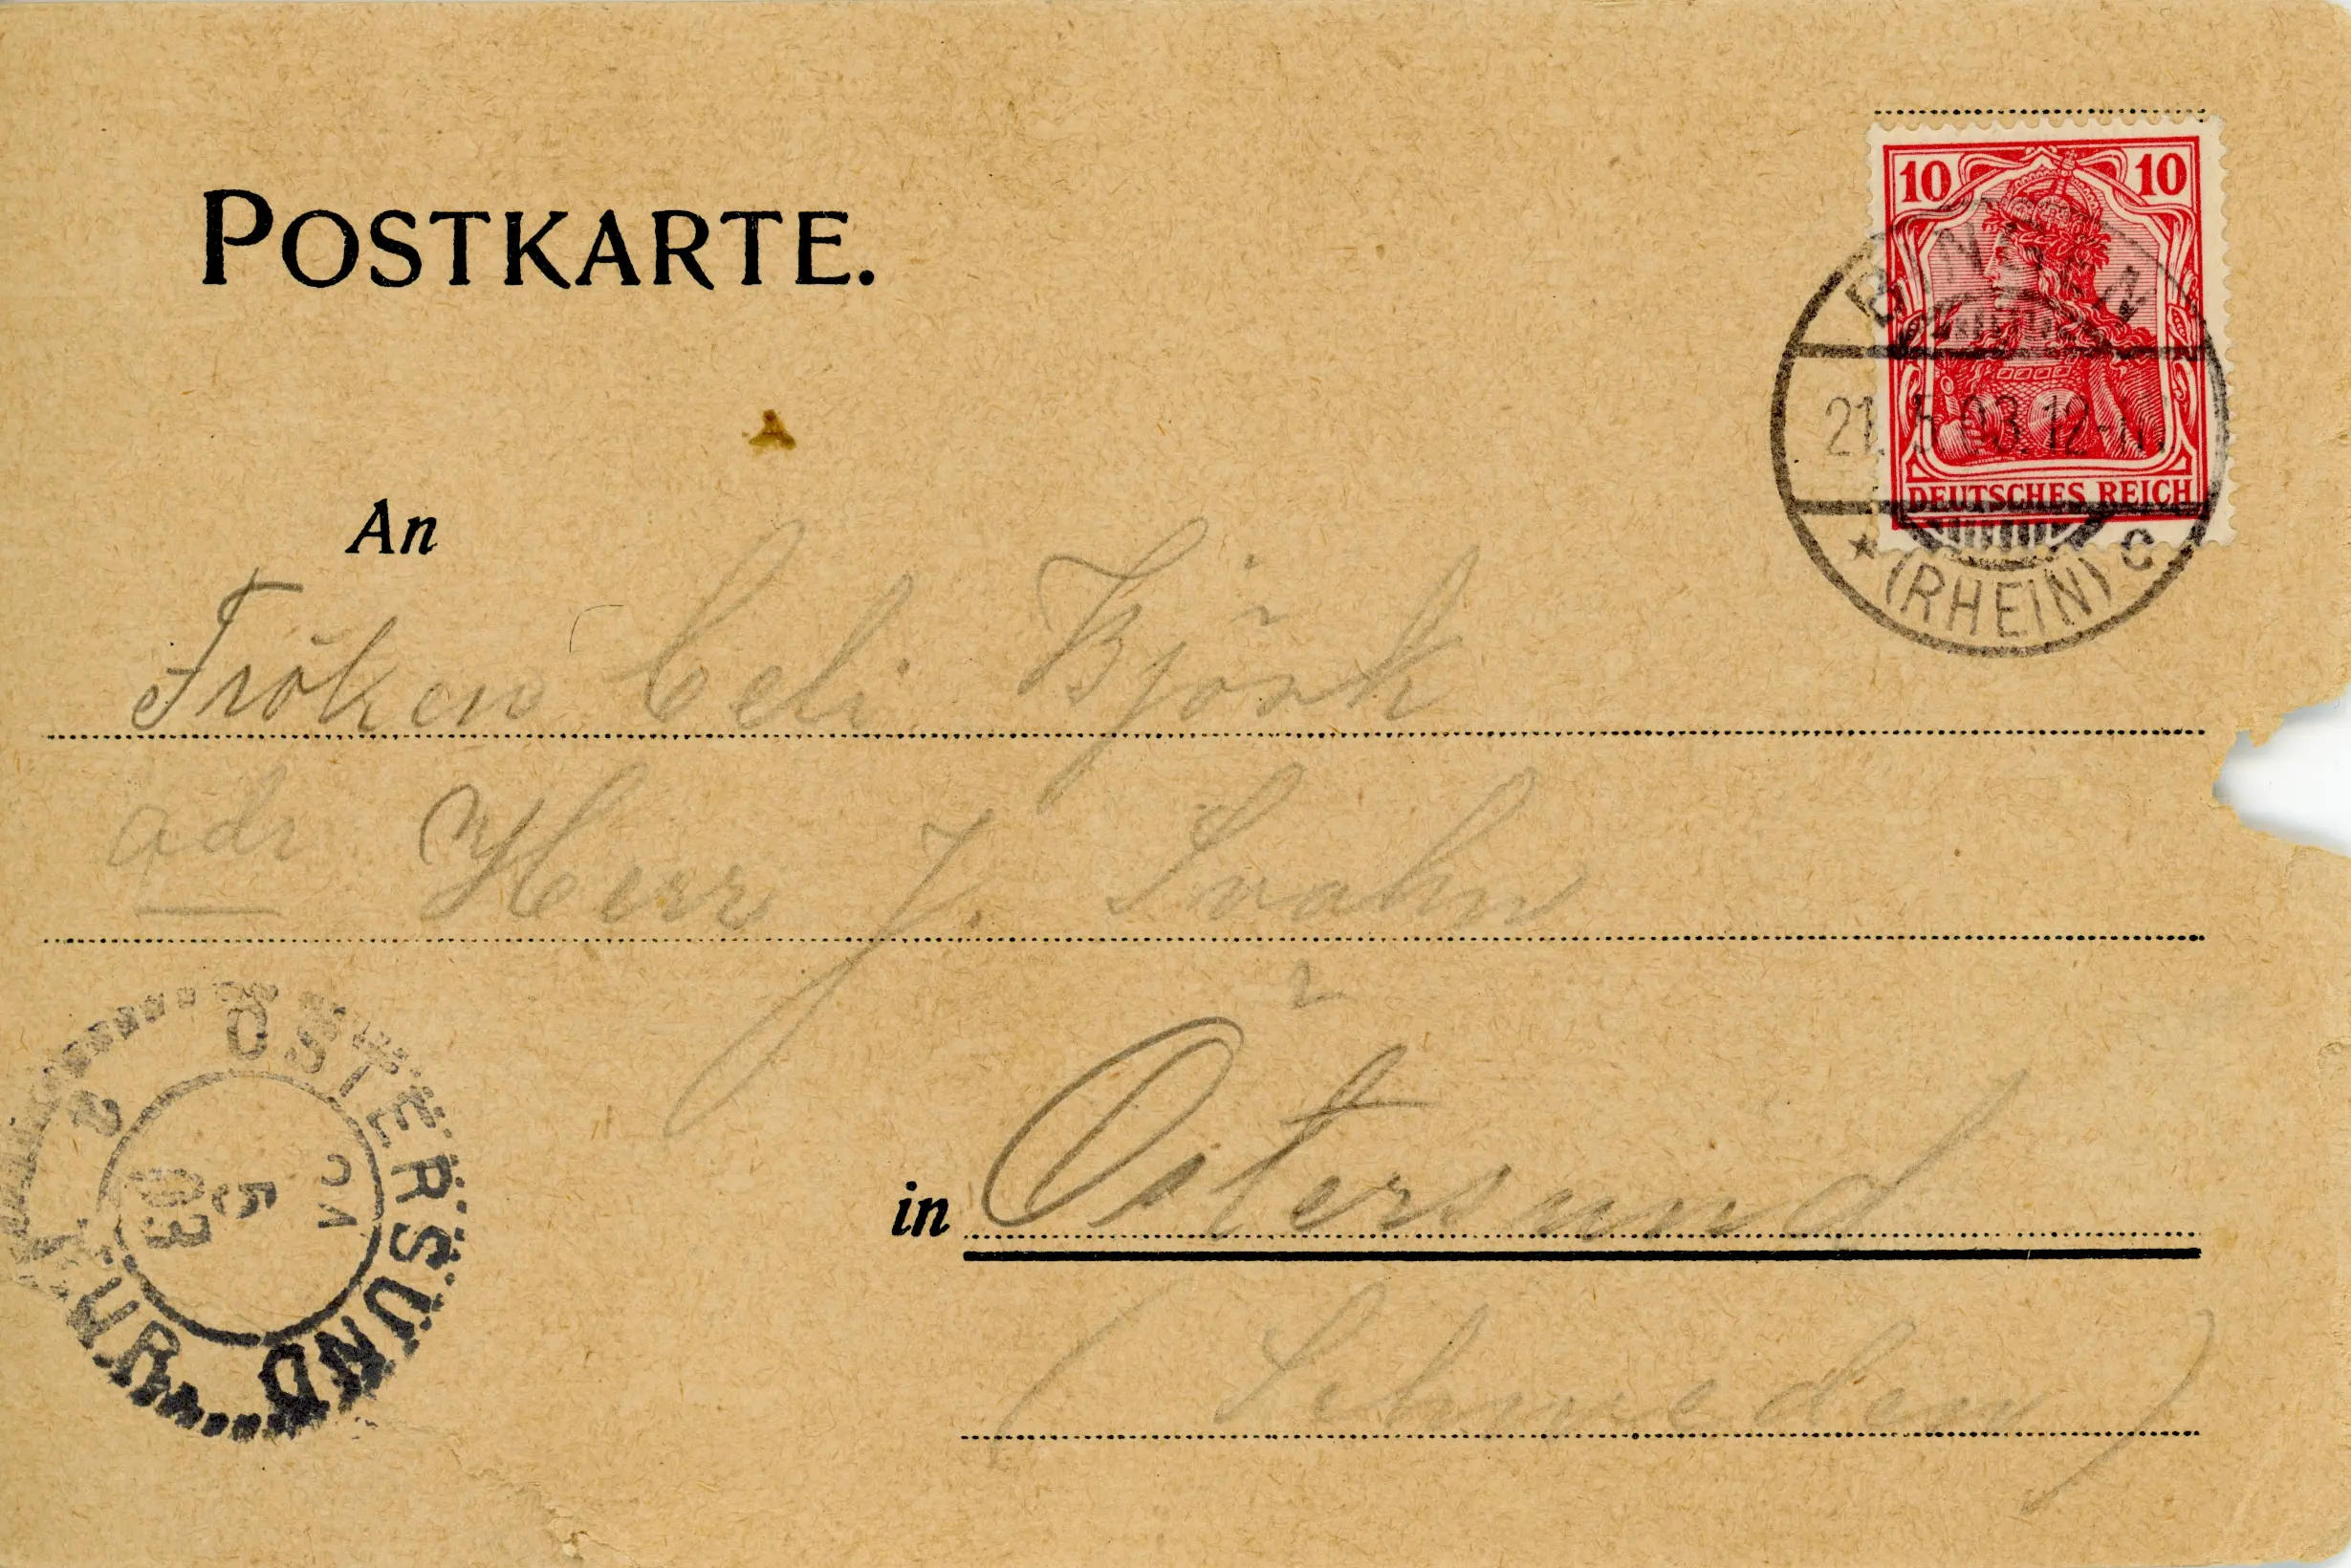 POSTKARTE.
10 10
DEUTSCHES REICH
BINGEN
21.5.03.12-
* (RHEIN) C
An
Fröken Celi Björk
adr Herr J. Svahn
in Östersund
(Schweden)
ÖSTERSUND
5
03